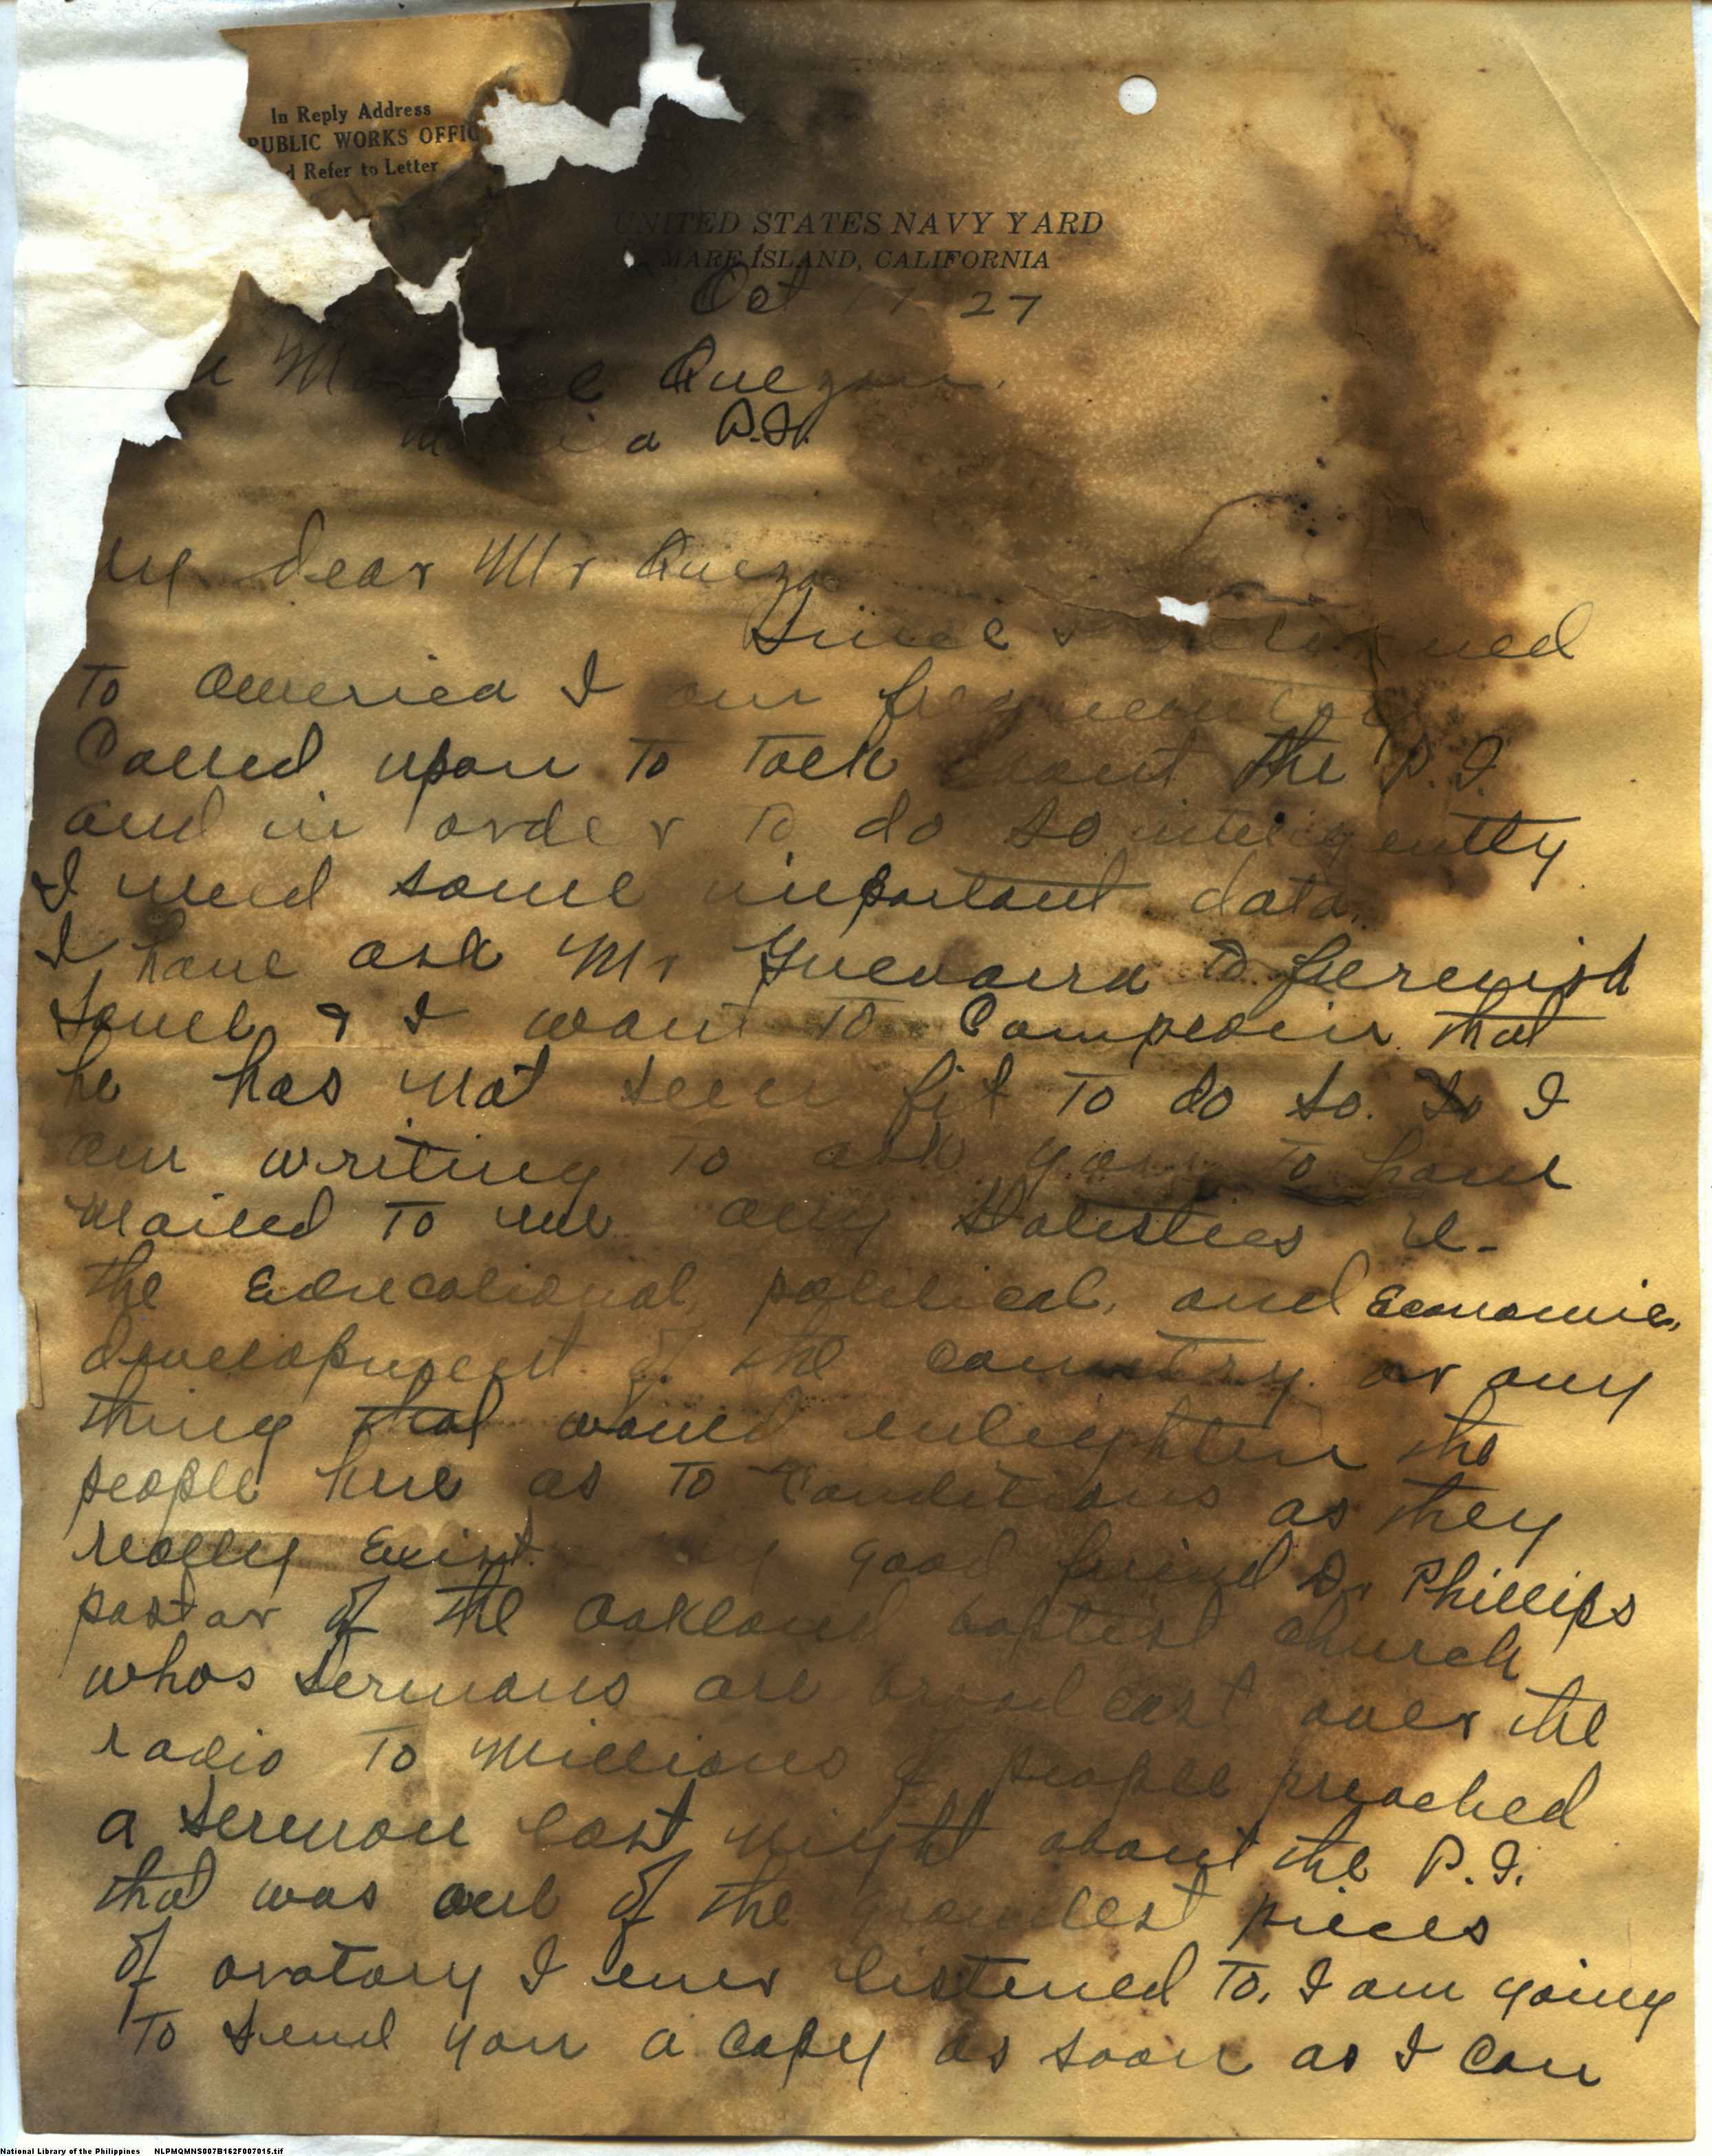 In Reply Address
PUBLIC WORKS OFFIC
d Refer to Letter
UNITED STATES NAVY YARD
MARE ISLAND, CALIFORNIA
Oct 17 27
Quezon.
P.I.
My dear Mr Quezon
Since I returned
To America I am frequently
Called upon To Talk about the P.I.
and in order To do so inteligently
I need some important data.
I have ask Mr Guevarra To furnish
some, & I want To Complain that
he has not seen fit To do so. So I
am writing To ask you To have
mailed To me any Statistics re-
the Educational political, and Economic,
development of the country or any
thing that would enlighten the
people here as To Conditions as they
really Exist. My good friend Dr Phillips
pastor of the Oakland baptist church
whos sermons are broad cast over the
radio To Millions of people preached
a sermon last night about the P.I.
that was one of the grandest pieces
of oratory I ever listened To. I am going
To send you a Copy as soon as I Can
National Library of the Philippines NLPMQMNS007B162F007015.tif